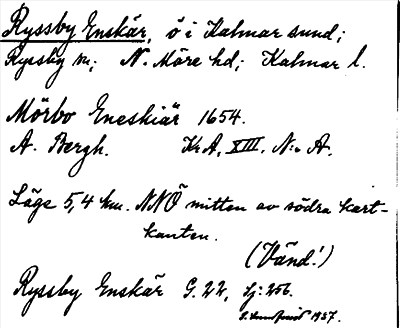 Ryssby Enskär, ö i Kalmar sund;
Ryssby sn; N. Möre hd; Kalmar l.
Mörbo Eneskiär 1654.
A. Bergh. KrA, XIII. N:o A.
Läge 5,4 km. NNÖ mitten av södra kart-
kanten.
(Vänd!)
Ryssby Enskär G. 22, Sj: 256.
1937.